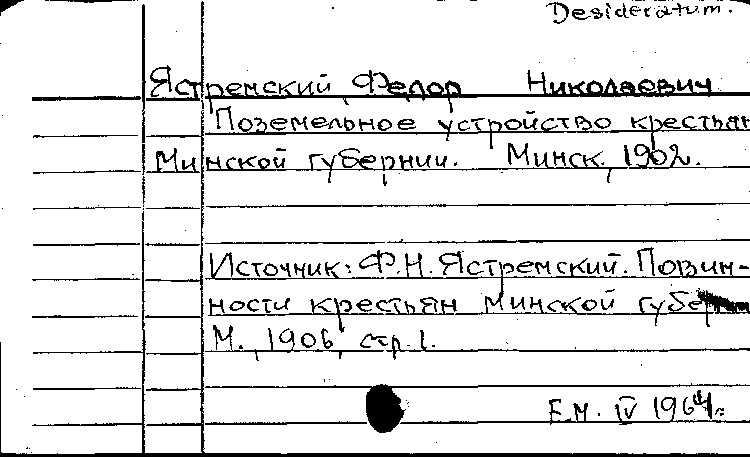 Desideratum.
Ястремский, Федор Николаевич
Поземельное устройство крестьян
Минской губернии. Минск, 1902.
Источник: Ф.Н. Ястремский. Повин-
ности крестьян Минской губерн
М., 1906, стр. 1.
Е.М. IV 1964 г.